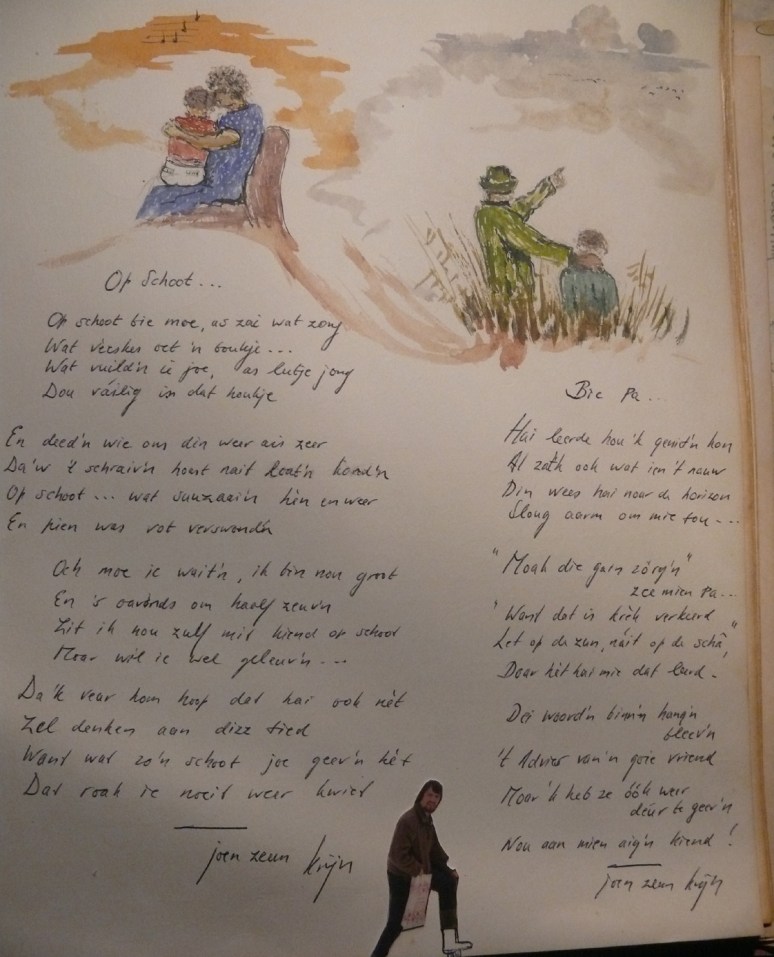 Op Schoot...
Op schoot bie moe, as zai wat zong
Wat veeskes oet 'n boukje...
Wat vuild'n ie joe, as lutje jong
Dou váilig in dat houkje
En deed'n wie ons din weer ais zeer
Da'w 't schraiv'n hoast nait loat'n kond'n
Op schoot... wat suuzaai'n hin en weer
En pien was rot verswond'n
Och moe ie wait'n, ik bin nou groot
En 's oavonds om haalf zeuv'n
Zit ik nou zulf mit kiend op schoot
Moar wil ie wel geleuv'n...
Da'k veur hom hoop dat hai ook nèt
Zel denken aan dizz' tied
Want wat zo'n schoot joe geev'n hèt
Dat roak ie nooit weer kwiet
joen zeun Krijn
Bie Pa...
Hai leerde hou 'k genid'n kon
Al zat'k ook wat ien 't nauw
Din wees hai noar de horizon
Sloug aarm om mie tou...
"Moak die gain zörg'n"
zee mien Pa...
"Want dat is krèk verkeerd
Let op de zun, náit op de schâ,"
Doar hèt hai mie dat leerd.
Dei woord'n binn'n hang'n
bleev'n
't Advies van 'n goie vriend
Moar 'k heb ze óók weer
deur te geev'n
Nou aan mien aig'n kiend!
joen zeun Krijn